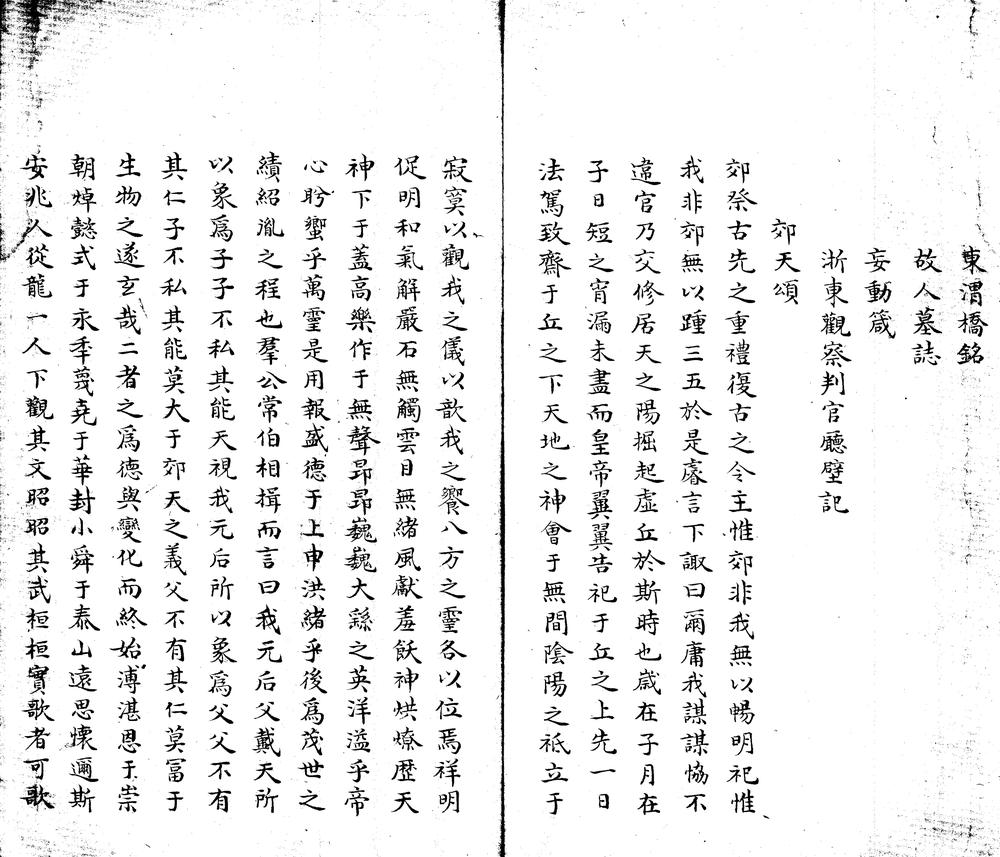 東渭橋銘
故人墓誌
妄動箴
浙東觀察判官廳壁記
郊天頌
郊祭古先之重禮復古之令主惟郊非我無以暢明祀惟
我非郊無以踵三五於是睿言下諏曰爾庸我謀謀恊不
違官乃交修居天之陽掘起虛丘於斯時也歳在子月在
子日短之宵漏未盡而皇帝翼翼告祀于丘之上先一日
法駕致齋于丘之下天地之神會于無間陰陽之祇立于
寂寞以觀我之儀以歆我之饗八方之靈各以位焉祥明
促明和氣解嚴石無觸雲日無緒風獻羞飫神烘燎歷天
神下于蓋高樂作于無聲昻昻巍巍大繇之英洋溢乎帝
心肸蠁乎萬靈是用報盛德于上申洪緒乎後爲茂世之
績紹胤之程也羣公常伯相揖而言曰我元后父戴天所
以象爲子子不私其能天視我元后所以象爲父父不有
其仁子不私其能莫大于郊天之義父不有其仁莫冨于
生物之遂玄哉二者之爲德與變化而終始溥湛恩于崇
朝焯懿式于永秊蔑堯于華封小舜于泰山遠思懷邇斯
安兆人從龍一人下觀其文昭昭其武桓桓實歌者可歌